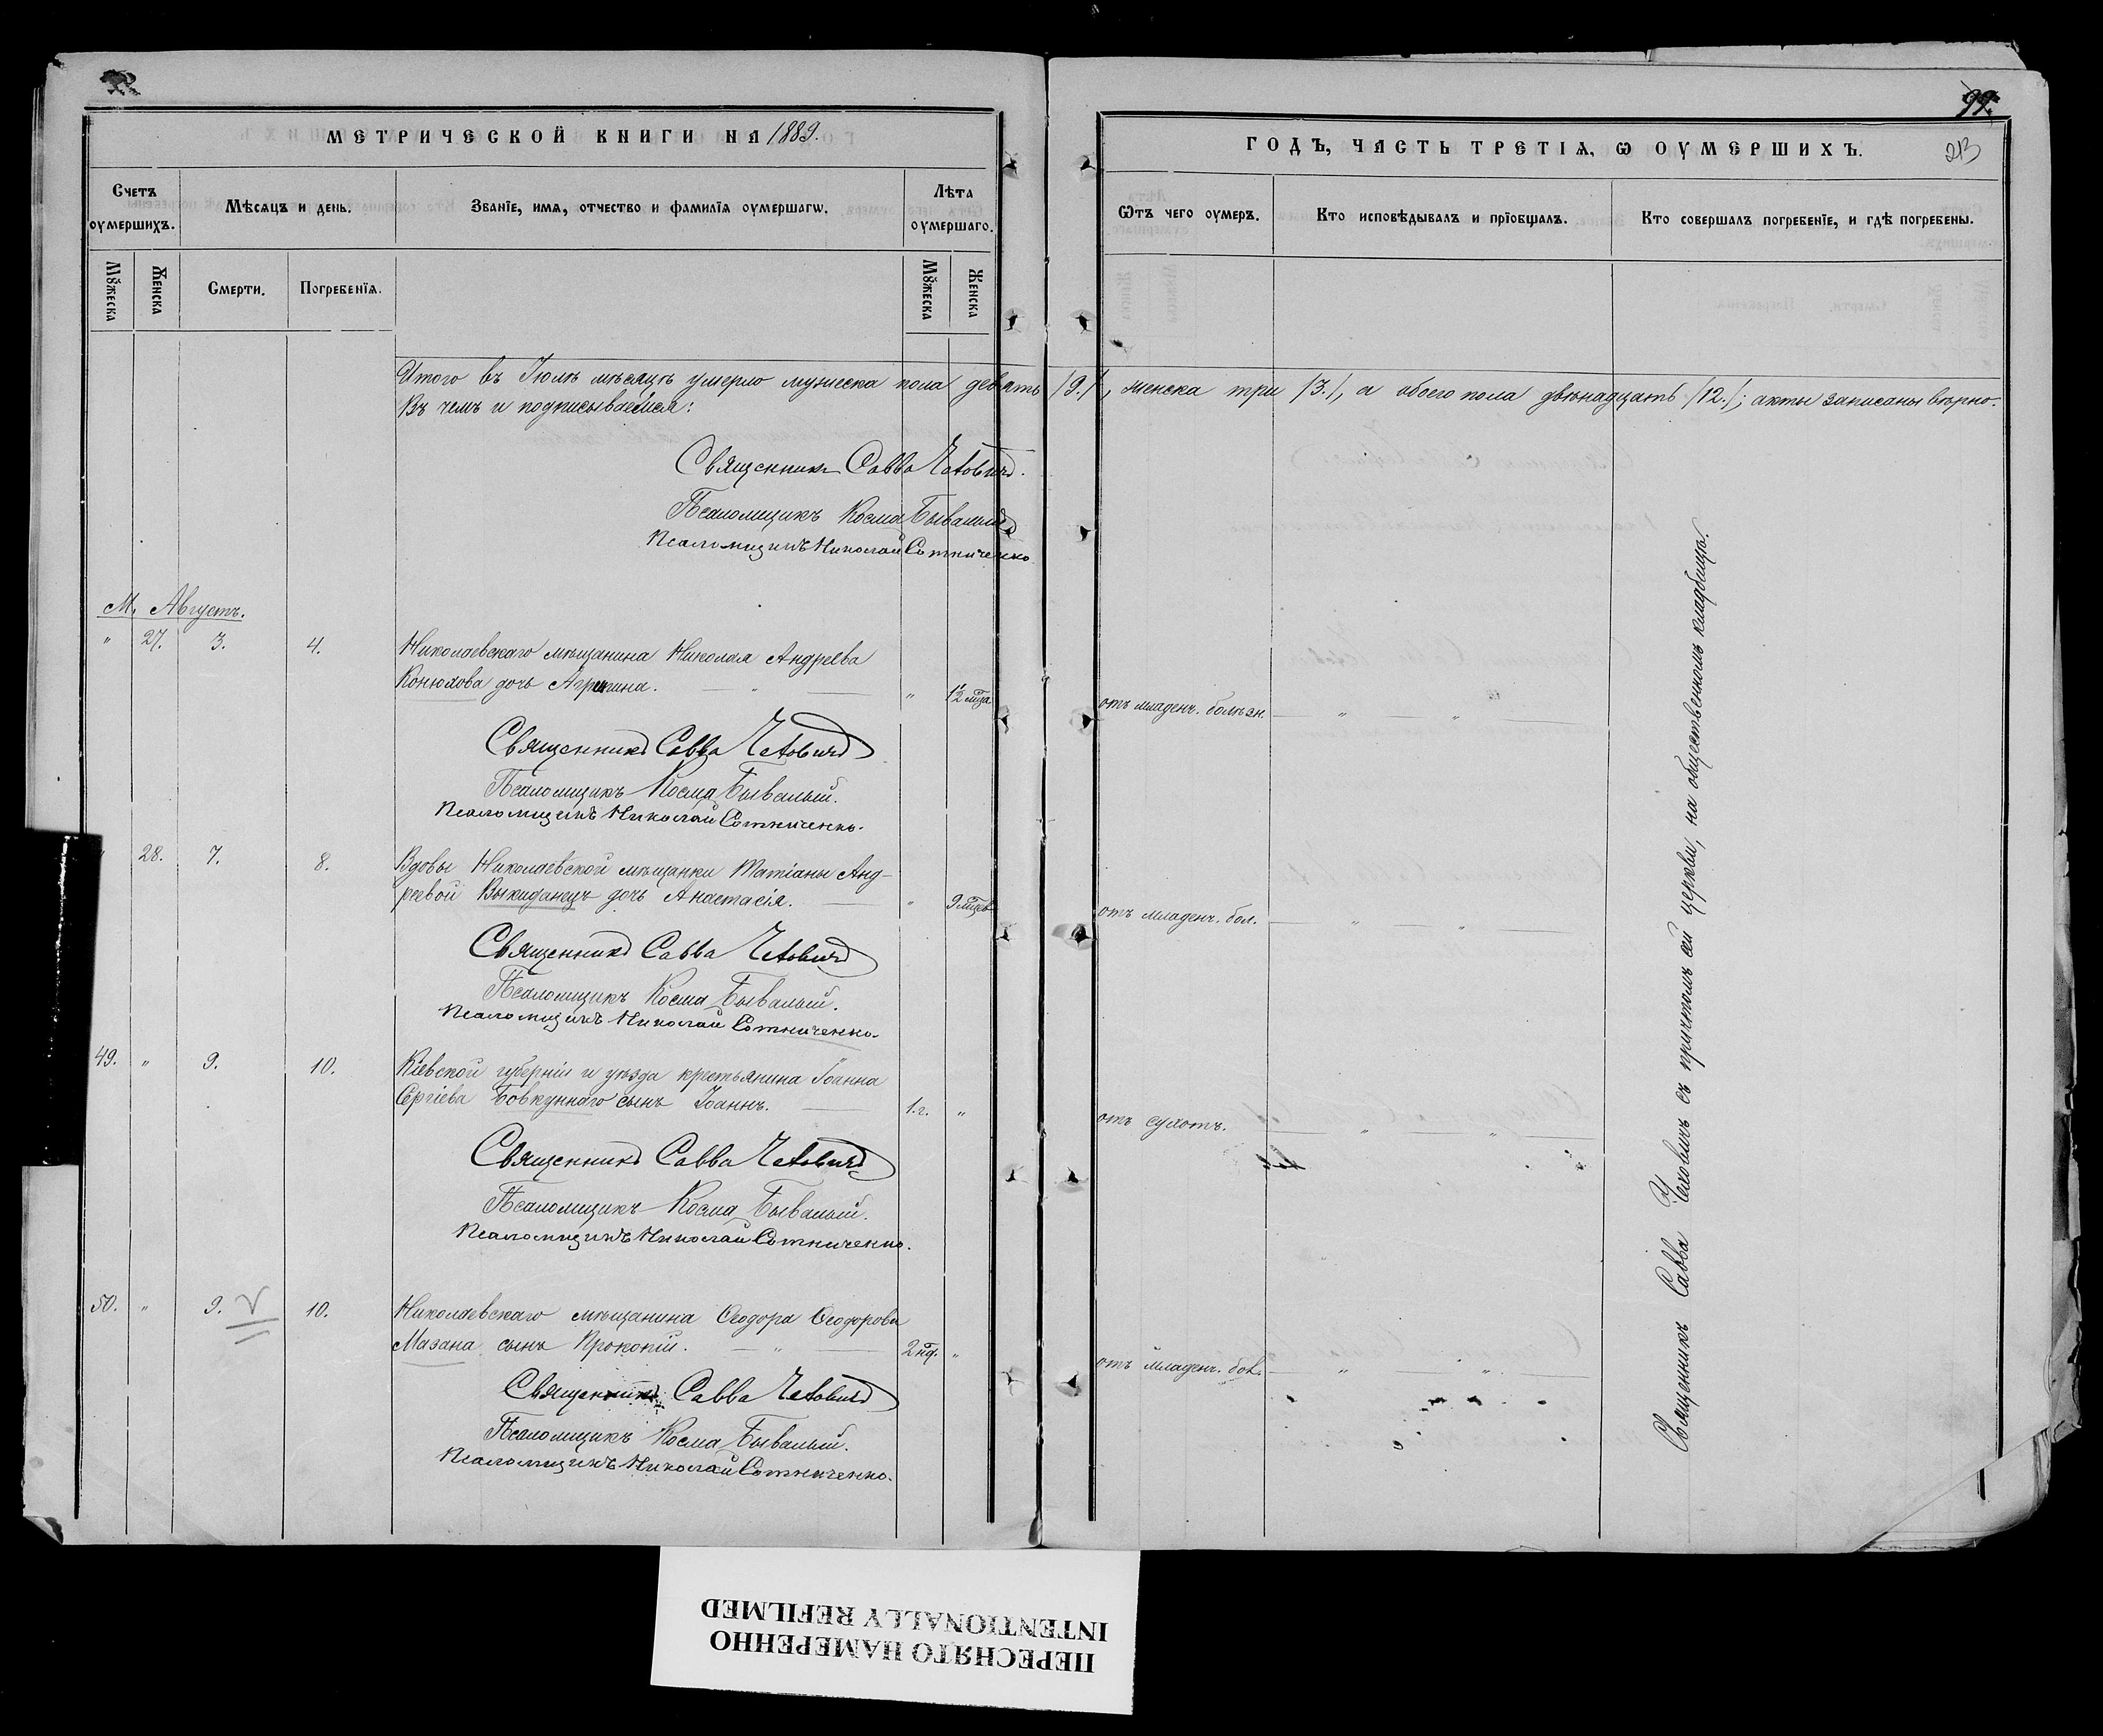 99.
213
МЕТРИЧЕСКОЙ КНИГИ НА 1889.
ГОДЪ, ЧАСТЬ ТРЕТІѦ, Ѡ ОУМЕРШИХЪ.
Счетъ оумершихъ.
Мѣсяцъ и день.
Званїе, имѧ, отчество и фамилїѧ оумершагѡ.
Лѣта оумершаго.
Ѿтъ чего оумеръ.
Кто исповѣдывалъ и прїобщалъ.
Кто совершалъ погребенїе, и гдѣ погребены.
Мꙋжеска
Женска
Смерти.
Погребенїѧ.
Мꙋжеска
Женска
Итого въ Іюлѣ мѣсяцѣ умерло мужеска пола девять /9./, женска три /3./, а обоего пола двѣнадцать /12./; акты записаны вѣрно.
Въ чемъ и подписываемся:
Священникъ Савва Чехович
Псаломщикъ Косма Бывалый
Псаломщикъ Николай Сотниченко
М. Августъ.
" 27. 3. 4. Николаевскаго мѣщанина Николая Андреева
Конюхова дочь Агрипина. — " — " 1½ мца отъ младенч. болѣзн. — " — " —
Священникъ Савва Чехович
Псаломщикъ Косма Бывалый.
Псаломщикъ Николай Сотниченко.
" 28. 7. 8. Вдовы Николаевской мѣщанки Татіаны Анд-
реевой Выкиданецъ дочь Анастасія. — " 9 мцев отъ младенч. бол. — " — " —
Священникъ Савва Чехович
Псаломщикъ Косма Бывалый.
Псаломщикъ Николай Сотниченко.
49. " 9. 10. Кіевской губерніи и уѣзда крестьянина Іоанна
Сергіева Бовкуннаго сынъ Іоаннъ. — 1.г. " отъ сухотъ. — " — " —
Священникъ Савва Чехович
Псаломщикъ Косма Бывалый.
Псаломщикъ Николай Сотниченко.
50. " 9. 10. Николаевскаго мѣщанина Ѳеодора Ѳеодорова
Мазана сынъ Прокопій. — " — 2 нд. " отъ младенч. бол. — " — " —
Священникъ Савва Чехович
Псаломщикъ Косма Бывалый.
Псаломщикъ Николай Сотниченко.
Священникъ Савва Чеховичъ съ причтомъ сей церкви, на общественномъ кладбищѣ.
ПЕРЕСНЯТО НАМЕРЕННО
INTENTIONALLY REFILMED